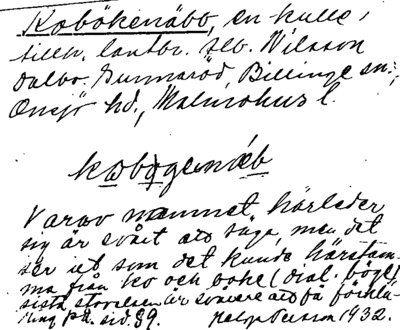 Kobökenäbb, en kulle,
tillh. lantbr. Alb. Nilsson
Dalbo, Gunnaröd, Billinge sn.,
Onsjö hd., Malmöhus l.
Varav namnet härleder
sig är svårt att säga, men det
ser ut som det kunde härstam-
ma från ko och boke (dial. böge)
sista stavelsen är svårare att få förkla-
ring på. sid. 89. Helge Persson 1932.